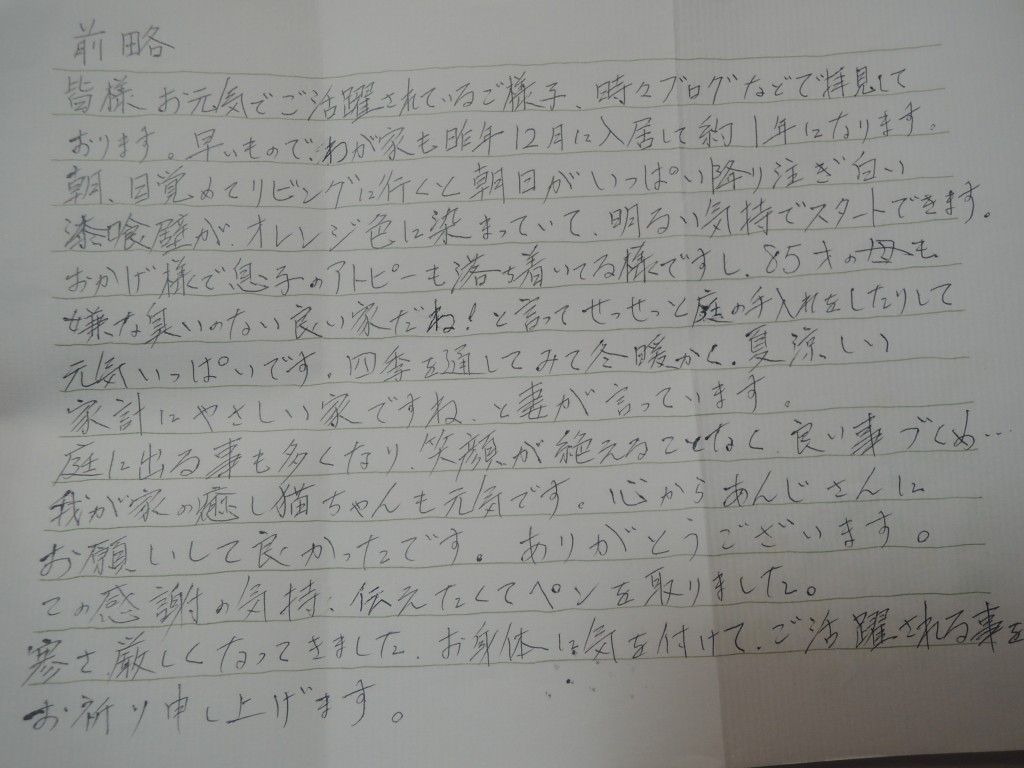 前略
皆様 お元気でご活躍されているご様子、時々ブログなどで拝見して
おります。早いもので、わが家も昨年12月に入居して約1年になります。
朝、目覚めてリビングに行くと朝日がいっぱい降り注ぎ白い
漆喰壁が、オレンジ色に染まっていて、明るい気持でスタートできます。
おかげ様で息子のアトピーも落ち着いてる様ですし、85才の母も
嫌な臭いのない良い家だね!と言ってせっせっと庭の手入れをしたりして
元気いっぱいです。四季を通してみて冬暖かく、夏涼しい
家計にやさしい家ですね、と妻が言っています。
庭に出る事も多くなり、笑顔が絶えることなく、良い事づくめ…
我が家の癒し猫ちゃんも元気です。心からあんじさんに
お願いして良かったです。ありがとうございます。
この感謝の気持、伝えたくてペンを取りました。
寒さ厳しくなってきました、お身体に気を付けて、ご活躍される事を
お祈り申し上げます。